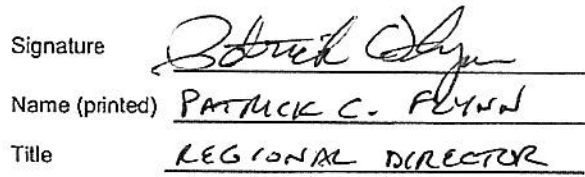 Signature Patrick C Flynn
Name (printed) PATRICK C. FLYNN
Title REGIONAL DIRECTOR